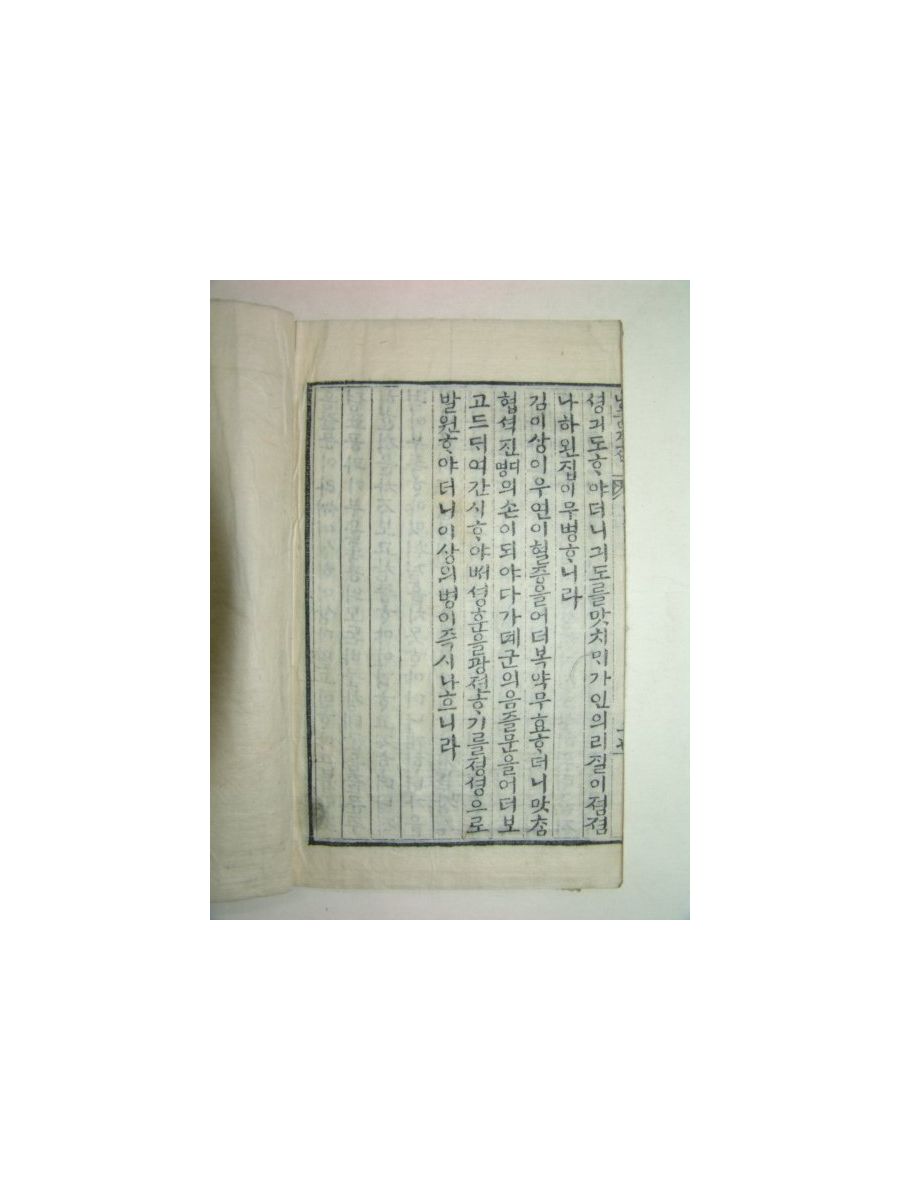 셩긔도ᄒᆞ야더니긔도를맛치ᄆᆡ가인의리질이졈졈
나하왼집이무병ᄒᆞ니라
김이상이우연이혈증을어더복약무효ᄒᆞ더니맛ᄎᆞᆷ
협셕진의손이되야다가뎨군의음즐문을어더보
고드듸여간시ᄒᆞ야ᄇᆡᆨ셩훈을광젼ᄒᆞ기를졍셩으로
발원ᄒᆞ야더니이상의병이즉시나흐니라